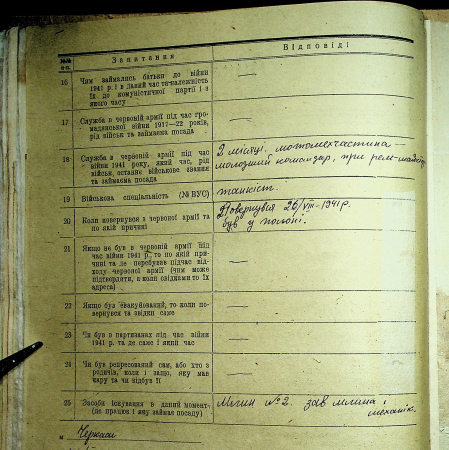 №№ п.п.
Запитання
Відповіді
16
Чим займались батьки до війни
1941 р. і в даний час та належність
їх до комуністичної партії і з
якого часу
—
17
Служба в червоній армії під час гро-
мадянської війни 1917—22 років,
рід військ та займаєма посада
—
18
Служба в червоній армії під час
війни 1941 року, який час, рід
військ, останнє військове звання
та займаєма посада
2 місяці. мотомехчастина —
молодший командир, при
19
Військова спеціальність (№ ВУС)
танкіст.
20
Коли повернувся з червоної армії та
по якій причині
Повернувся 26/VIII-1941 р.
був у полоні.
21
Якщо не був в червоній армії під
час війни 1941 р., то по якій при-
чині та де перебував підчас від-
ходу червоної армії (чим може
підтвердити, а коли свідками то їх
адреса)
—
22
Якщо був евакуйований, то коли по-
вернувся та звідки саме
—
23
Чи був в партизанах під час війни
1941 р. та де саме і який час
—
24
Чи був репресований сам, або хто з
родичів, коли і защо, яку мав
кару та чи відбув її
—
25
Засоби існування в даний момент
(де працює і яку займає посаду)
Млин №2. зав млина і
механік.
м Черкаси